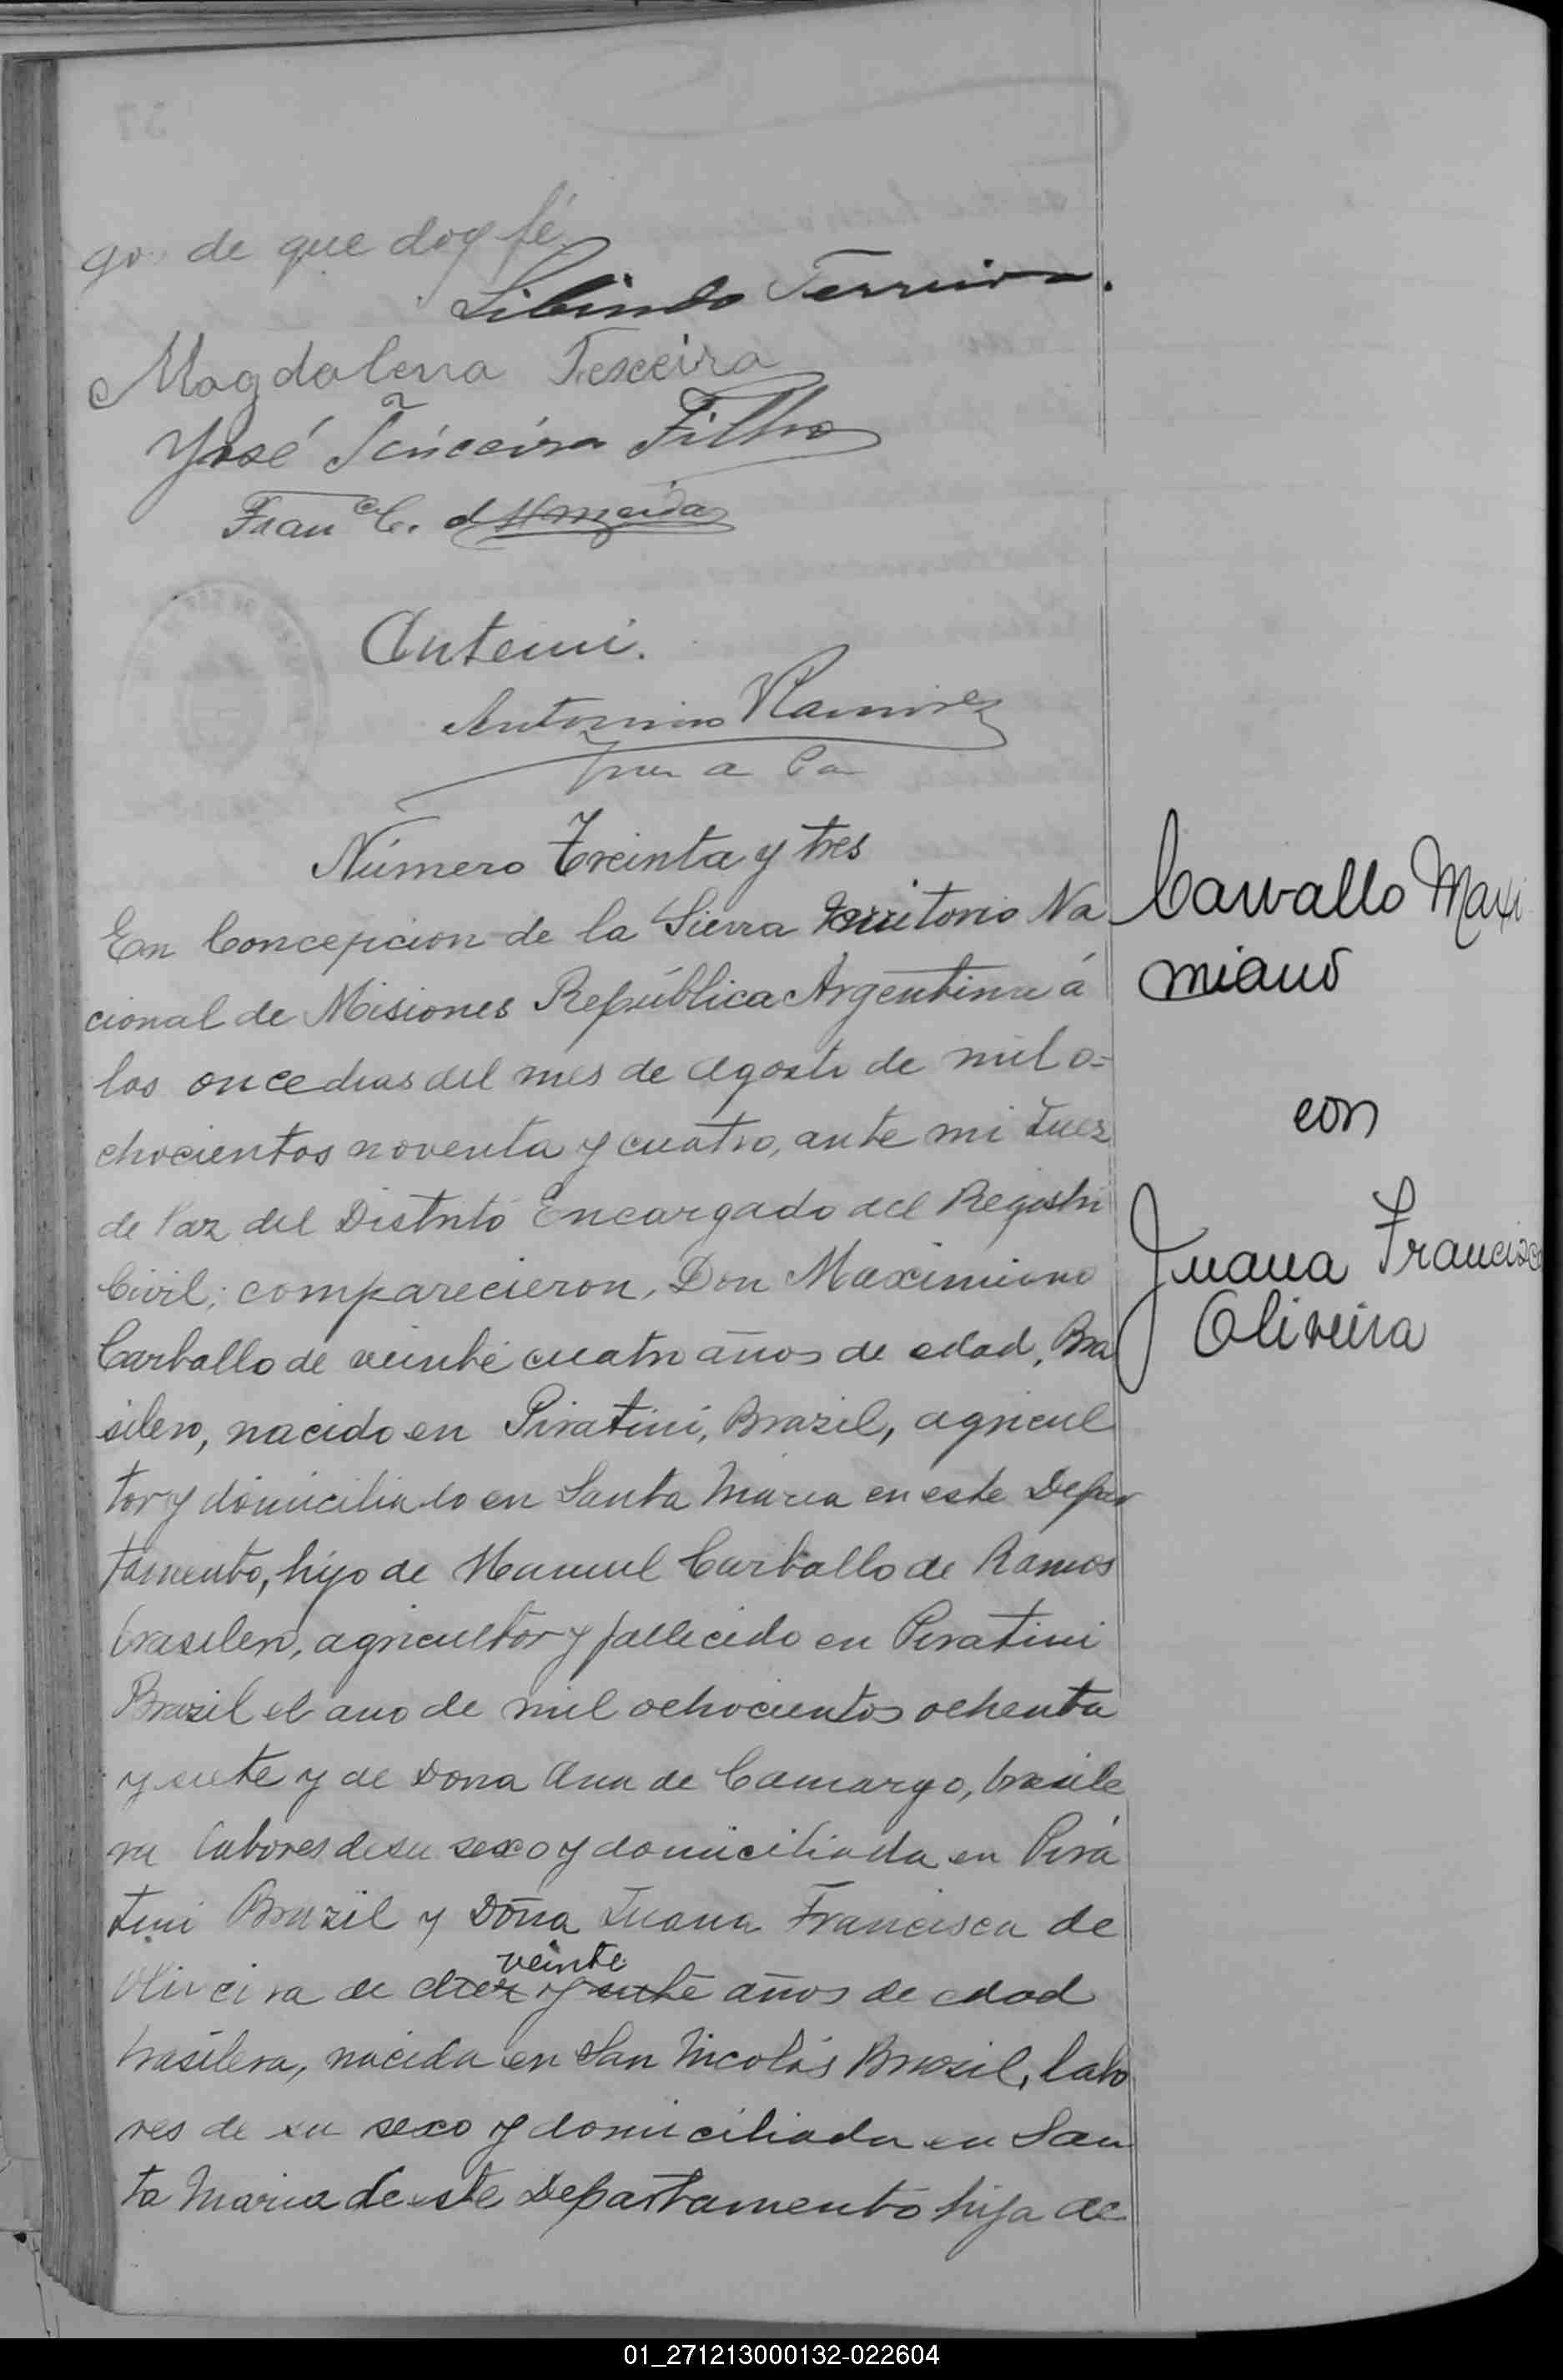 go de que doy fé
Libindo Ferreira.
Magdalena Texceira
José Teixceira Filho
Fran.co C. d'Almeida
Antemi.
Antonino Ramirez
Juez de Paz
Número Treinta y tres
En Concepcion de la Sierra Territorio Na
cional de Misiones República Argentina á
los once dias del mes de Agosto de mil o=
chocientos noventa y cuatro, ante mi Juez
de Paz del Distrito Encargado del Registro
Civil; comparecieron, Don Maximiano
Carballo de veinte cuatro años de edad, Bra
silero, nacido en Piratini, Brazil, agricul
tor y domiciliado en Santa Maria en este Depar
tamento, hijo de Manuel Carballo de Ramos
brasilero, agricultor y fallecido en Piratini
Brazil el ano de mil ochocientos ochenta
y siete y de Dona Ana de Camargo, brasile
ra labores de su sexo y domiciliada en Pira
tini Brazil y Doña Juana Francisca de
veinte
Oliveira de diez y siete años de edad
brasilera, nacida en San Nicolás Brazil, labo
res de su sexo y domiciliada en San
ta Maria de este Departamento hija de
Carvallo Maxi
miano
con
Juana Francisca
Oliveira
01_271213000132-022604